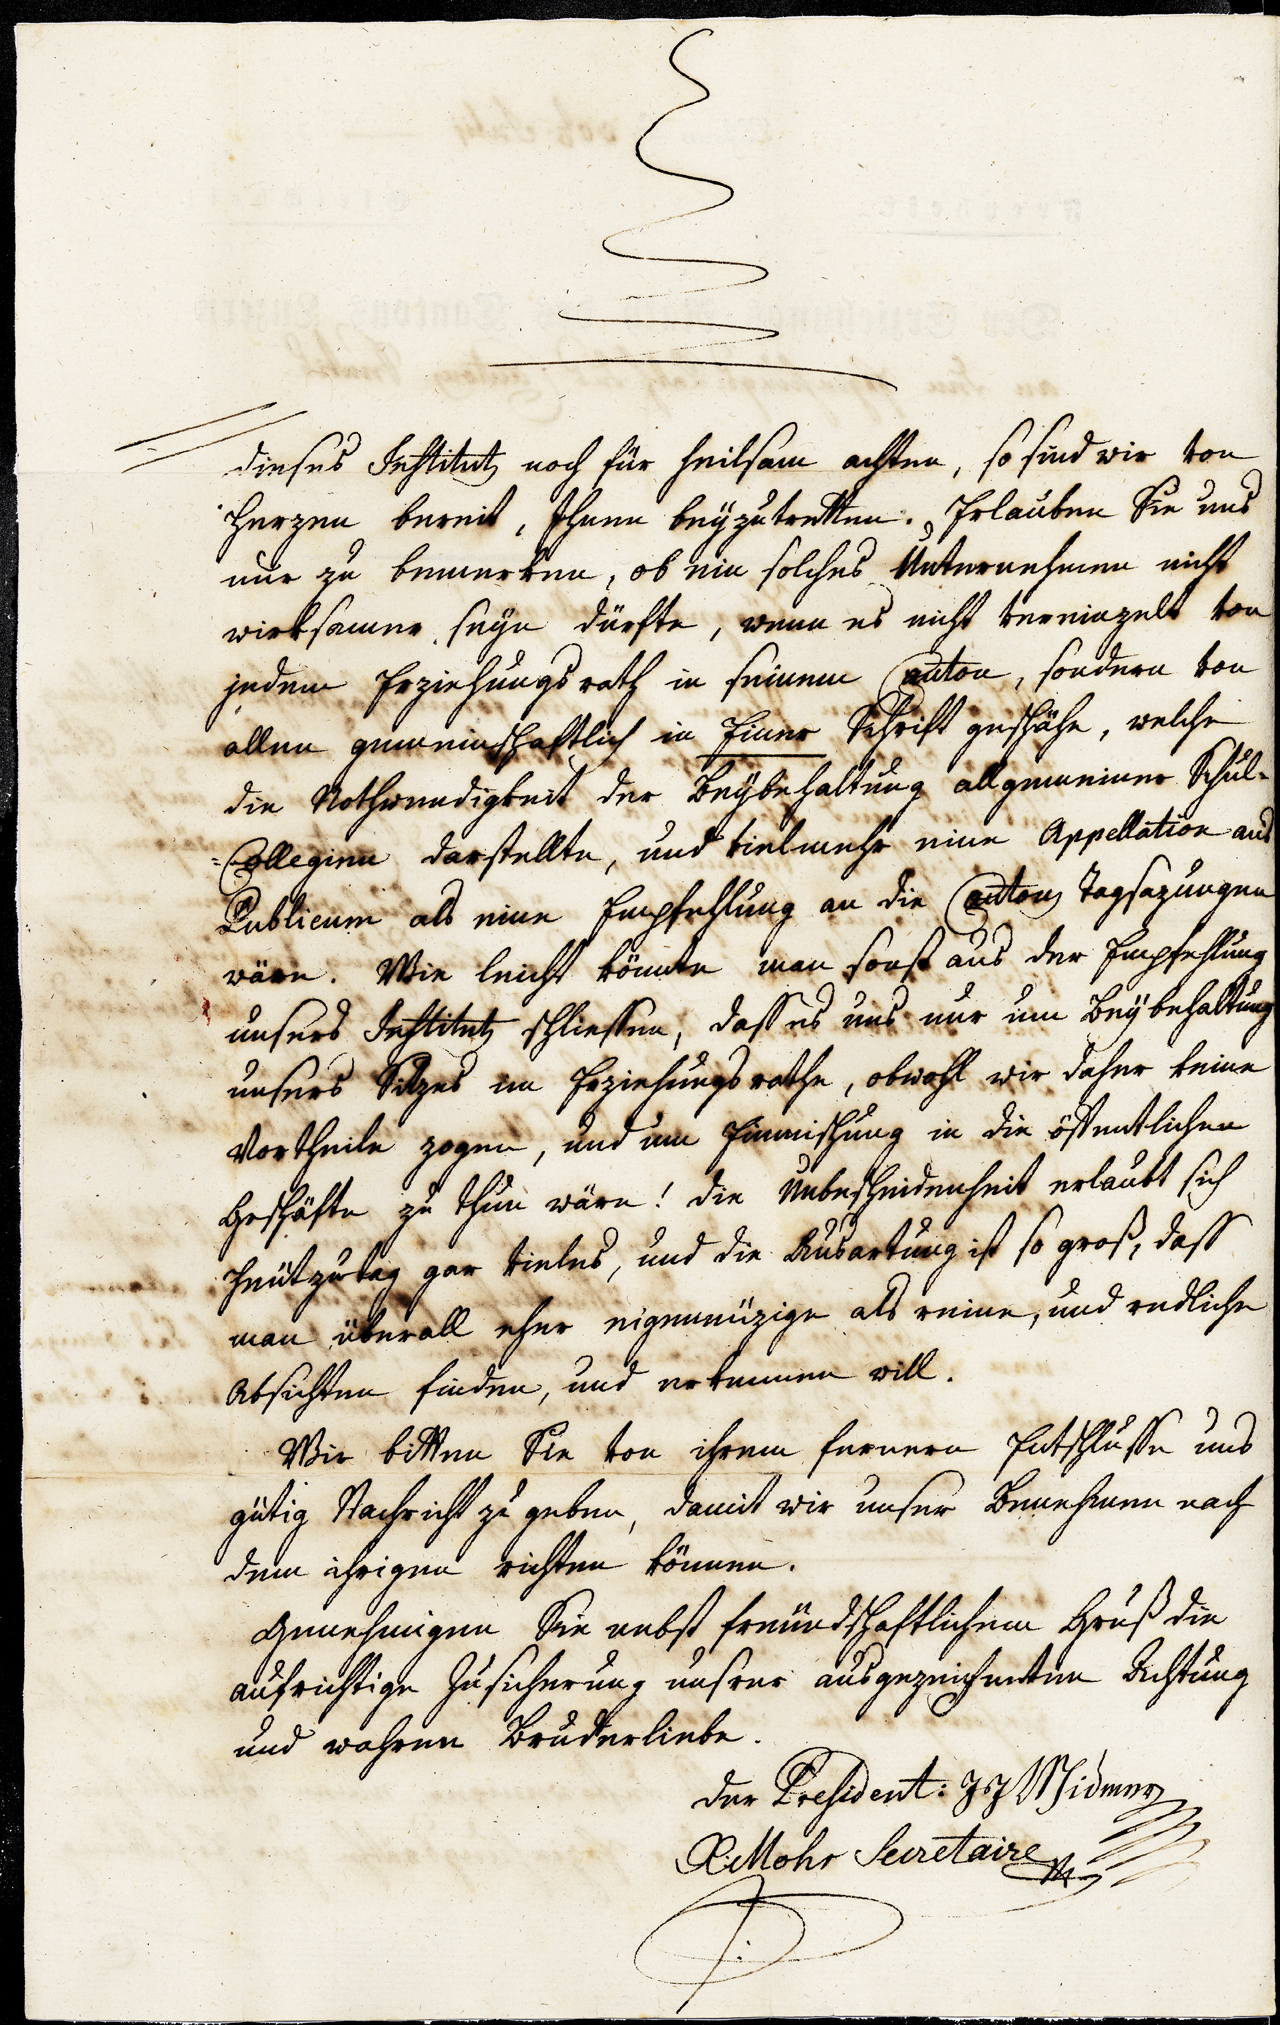 dieses Institutz noch für heilsam achten, so sind wir von
Herzen bereit, Ihnen beyzutretten. Erlauben Sie uns
nur zu bemerken, ob ein solches Unternehmen nicht
wirksamer seyn dürfte, wenn es nicht vereinzelt von
jedem Erziehungsrath in seinem Canton, sondern von
allen gemeinschaftlich in Einer Schrift geschähe, welche
die Nothwendigkeit der Beybehaltung allgemeiner Schul-
=Collegien darstellte, und vielmehr eine Appellation ans
Publicum als eine Empfehlung an die Cantons Tagsazungen
wäre. Wie leicht könnte man sonst aus der Empfehlung
unsers Institutz schliessen, dass es uns nur um Beybehaltung
unsers Sitzes im Erziehungsrathe, obwohl wir daher keine
Vortheile zogen, und um Einmischung in die öffentlichen
Geschäfte zu thun wäre! die Unbescheidenheit erlaubt sich
heützutag gar vieles, und die Ausartung ist so groß, dass
man überall eher eigennüzige als reine, und redliche
Absichten finden, und erkennen will.
Wir bitten Sie von ihrem fernern Entschlusse uns
gütig Nachricht zu geben, damit wir unser Benehmen nach
dem ihrigen richten können.
Genehmigen Sie nebst freündschaftlichem Gruß die
aufrichtige Zusicherung unsrer ausgezeichneten Achtung
und wahren Bruderliebe.
der President: Widmer
Mohr Secretaire